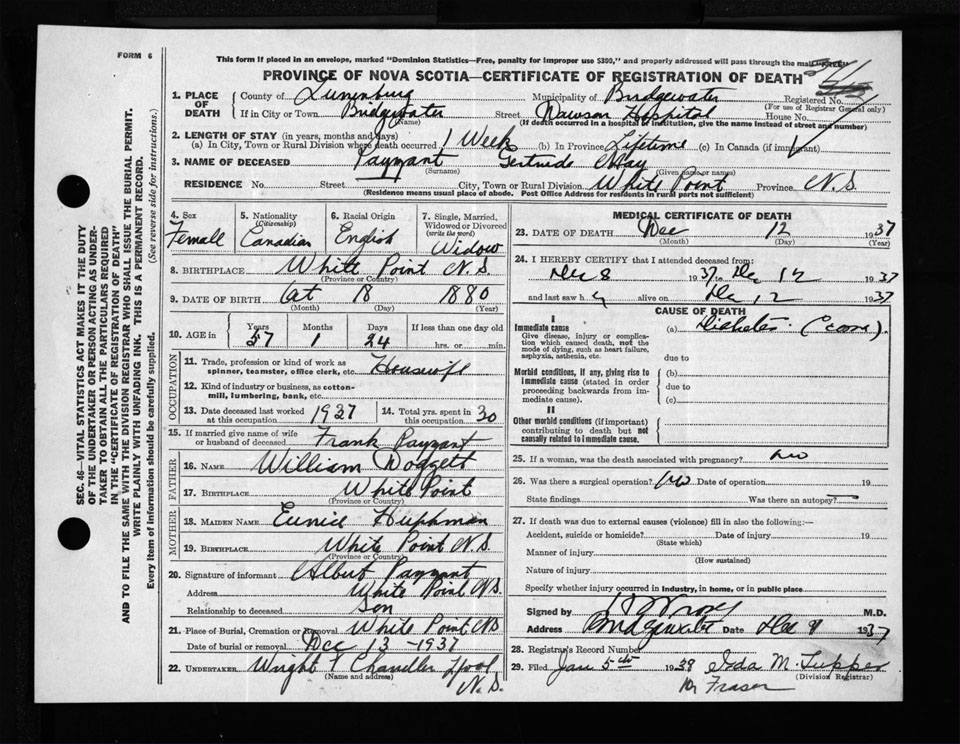 FORM 6
This form if placed in an envelope, marked "Dominion Statistics—Free, penalty for improper use $300," and properly addressed will pass through the mail "FREE"
PROVINCE OF NOVA SCOTIA—CERTIFICATE OF REGISTRATION OF DEATH
1. PLACE OF DEATH
County of Lunenburg Municipality of Bridgewater Registered No.
(For use of Registrar General only)
If in City or Town Bridgewater Street Dawson Hospital House No.
(If death occurred in a hospital or institution, give the name instead of street and number)
2. LENGTH OF STAY (in years, months and days)
(a) In City, Town or Rural Division where death occurred 1 Week (b) In Province Lifetime (c) In Canada (if immigrant)
3. NAME OF DECEASED Payzant Gertrude May
(Surname) (Given name or names)
RESIDENCE No. Street City, Town or Rural Division White Point Province N.S.
(Residence means usual place of abode. Post Office Address for residents in rural parts not sufficient)
4. Sex Female
5. Nationality (Citizenship) Canadian
6. Racial Origin English
7. Single, Married, Widowed or Divorced (write the word) Widow
8. BIRTHPLACE White Point N.S.
(Province or Country)
9. DATE OF BIRTH Oct 18 1880
(Month) (Day) (Year)
10. AGE in Years 57 Months 1 Days 24 If less than one day old hrs. or min.
OCCUPATION
11. Trade, profession or kind of work as spinner, teamster, office clerk, etc. Housewife
12. Kind of industry or business, as cotton-mill, lumbering, bank, etc.
13. Date deceased last worked at this occupation 1937
14. Total yrs. spent in this occupation 30
15. If married give name of wife or husband of deceased Frank Payzant
FATHER
16. NAME William Doggett
17. BIRTHPLACE White Point
(Province or Country)
MOTHER
18. MAIDEN NAME Eunice Hupman
19. BIRTHPLACE White Point N.S.
(Province or Country)
20. Signature of informant Albert Payzant
Address White Point N.S.
Relationship to deceased Son
21. Place of Burial, Cremation or Removal White Point N.S.
Date of burial or removal Dec 13 - 1937
22. UNDERTAKER Wright T Chandler L'pool N.S.
(Name and address)
MEDICAL CERTIFICATE OF DEATH
23. DATE OF DEATH Dec 12 1937
(Month) (Day) (Year)
24. I HEREBY CERTIFY that I attended deceased from:
Dec 8 1937 to Dec 12 1937
and last saw h alive on Dec 12 1937
CAUSE OF DEATH
I
Immediate cause (a) Diabetes (Coma).
Give disease, injury or complication which caused death, not the mode of dying, such as heart failure, asphyxia, asthenia, etc.
due to
Morbid conditions, if any, giving rise to immediate cause (stated in order proceeding backwards from immediate cause).
(b)
due to
(c)
II
Other morbid conditions (if important) contributing to death but not causally related to immediate cause.
25. If a woman, was the death associated with pregnancy? No
26. Was there a surgical operation? No Date of operation 19
State findings Was there an autopsy?
27. If death was due to external causes (violence) fill in also the following:—
Accident, suicide or homicide? Date of injury 19
(State which)
Manner of injury
(How sustained)
Nature of injury
Specify whether injury occurred in industry, in home, or in public place
Signed by M.D.
Address Bridgewater Date Dec 1937
28. Registrar's Record Number
29. Filed Jan 5th 1938 Ida M. Tupper
(Division Registrar)
Fraser
SEC. 46—VITAL STATISTICS ACT MAKES IT THE DUTY
OF THE UNDERTAKER OR PERSON ACTING AS UNDER-
TAKER TO OBTAIN ALL THE PARTICULARS REQUIRED
IN THE "CERTIFICATE OF REGISTRATION OF DEATH"
AND TO FILE THE SAME WITH THE DIVISION REGISTRAR WHO SHALL ISSUE THE BURIAL PERMIT.
WRITE PLAINLY WITH UNFADING INK. THIS IS A PERMANENT RECORD.
Every item of information should be carefully supplied. (See reverse side for instructions.)